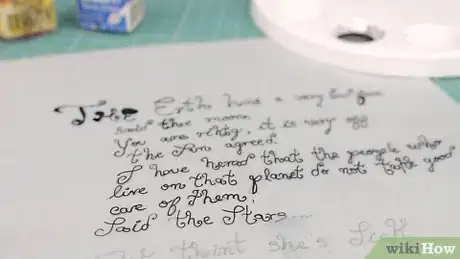 The Erth has a very
said the moon
You are rihty, it is very
the Sun agreed.
I have hered that the people who
live on that planet do not take good
care of them,
Said the Stars....
We thint she's Sick
wikiHow